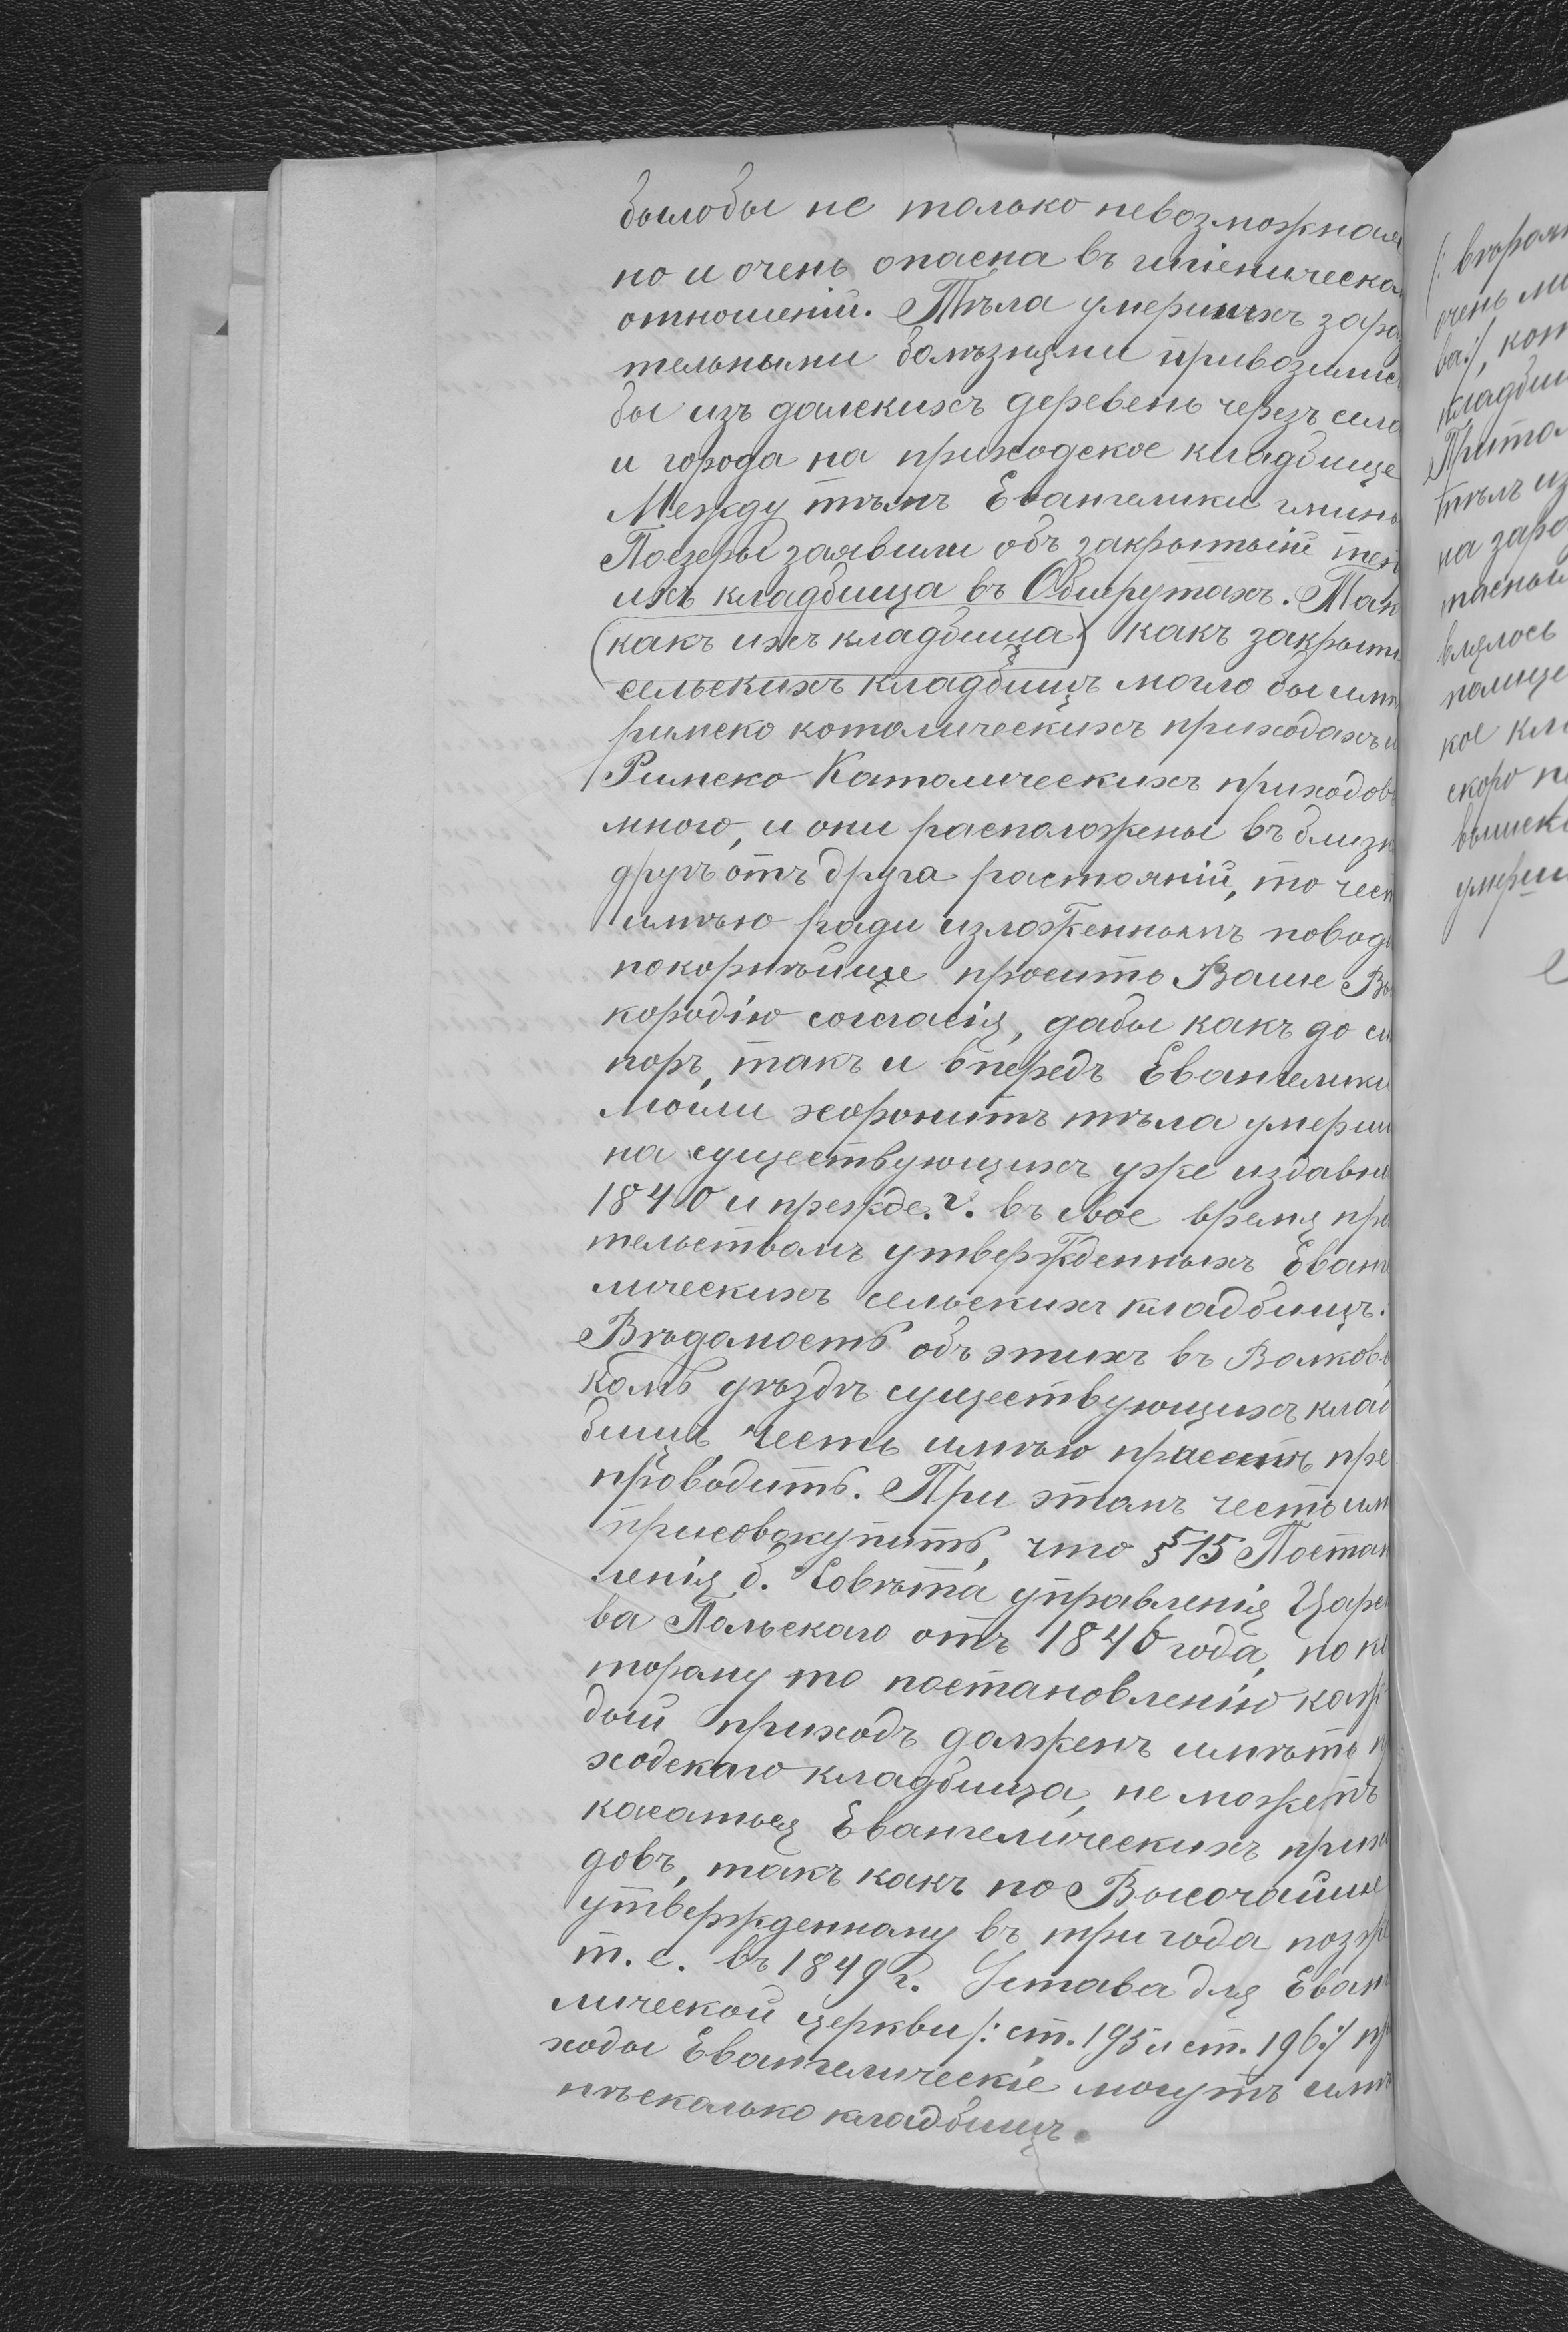 былобы не только невозможная
но и очень опасна въ гигіеническо
отношеніи. Тѣла умершихъ зара
тельными болѣзнями привозилис
бы изъ далекихъ деревень черезъ села
и города на приходское кладбище
Между тѣмъ Евангелики гмины
Поезеры заявили объ закрытіи
ихъ кладбища въ Обшрутахъ. Так
(какъ ихъ кладбища) какъ закрыті
сельскихъ кладбищъ могло бы имѣ
римско котолическихъ приходахъ и
Римско Католическихъ приходовъ
много, и они расположены въ близк
другъ отъ друга растояніи, то чест
имѣю ради изложеннымъ повод
покорнѣйше просить Ваше Вы
кородію согласія, дабы какъ до си
поръ, такъ и впередъ Евангелики
могли хоронитъ тѣла умерши
на существующихъ уже издавна
1840 и прежде. г. въ свое время пра
тельствамъ утвержденныхъ Еванг
лическихъ сельскихъ кладбищъ.
Вѣдамость объ этихъ въ Волковы
комъ уѣздѣ существующихъ клад
бищъ честь имѣю пре
проводить. При этамъ честь им
присовокупить, что § 15 Постан
ленія б. Совѣта управленія Царс
ва Польскаго отъ 1846 года, по ко
торому то постановленію каж
дый приходъ долженъ имѣть п
ходскаго кладбища, не можетъ
касаться Евангелическихъ прихо
довъ, такъ какъ по Высочайше
утвержденному въ три года позже
т. е. въ 1849 г. Устава для Еванг
лической церкви /: ст. 195 и ст. 196 :/ пр
ходы Евангелическіе могутъ имѣ
нѣсколько кладбищъ.
очень
ва :/, кот
кладбищ
При
тѣлъ из
на зара
влялось
помѣще
кое кла
скоро п
умерш